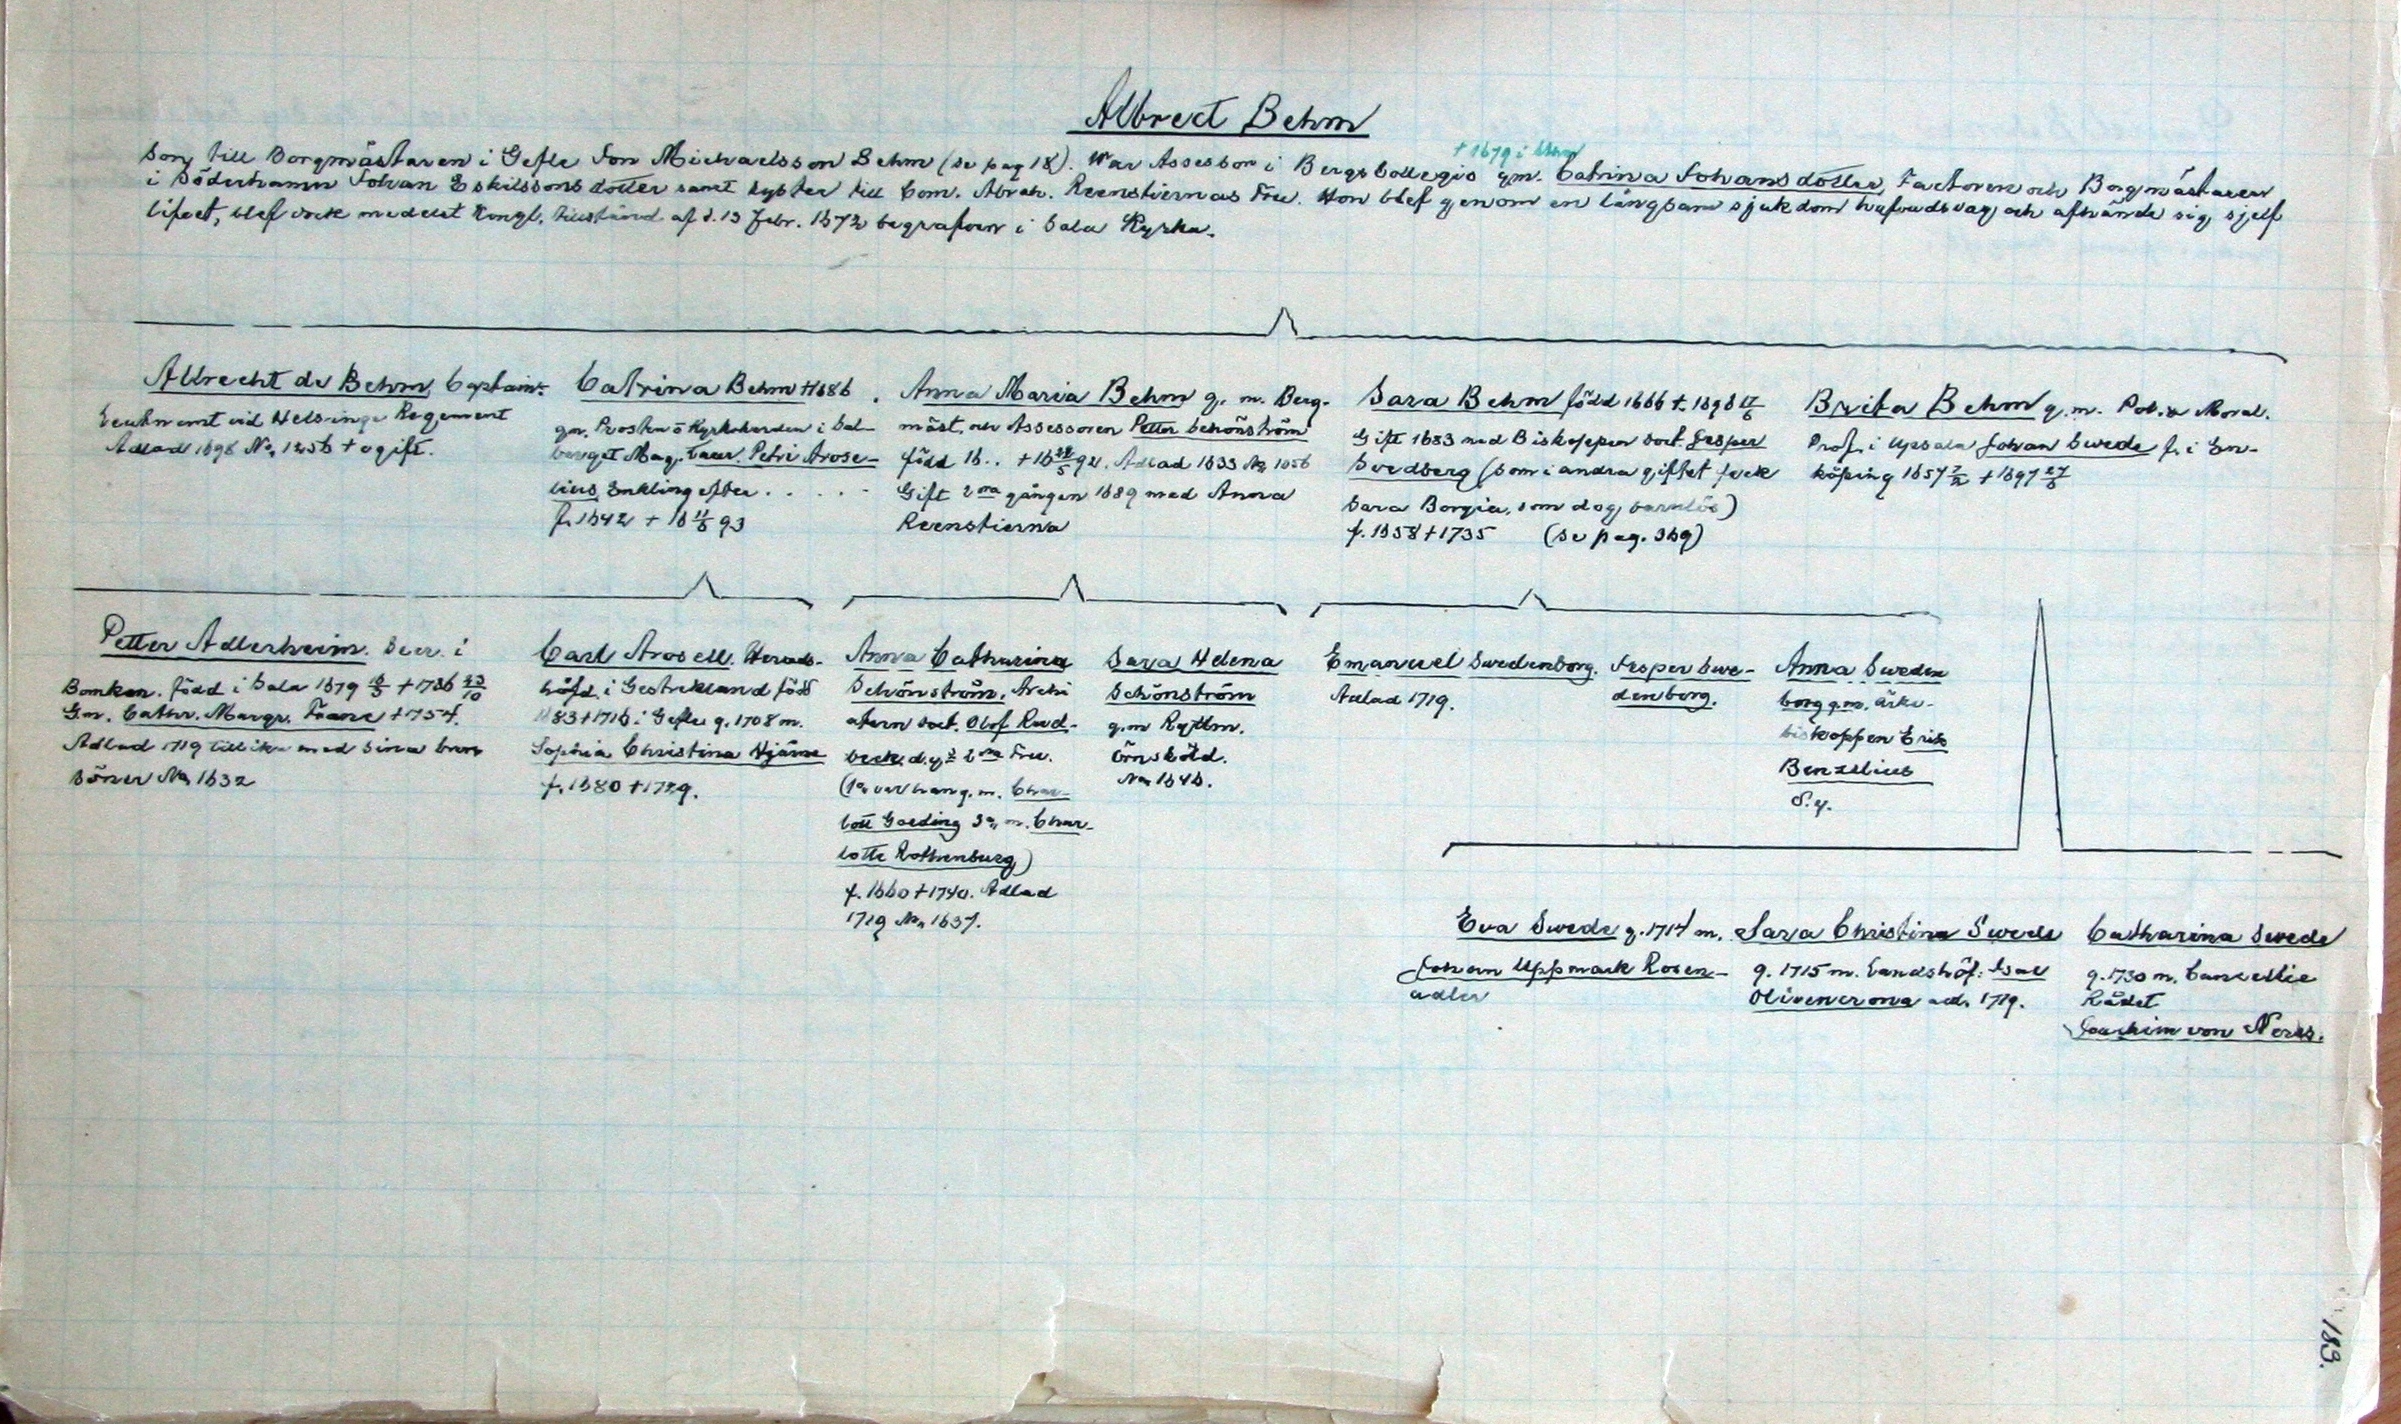 Albrect Behm
† 1679 i
Son till Borgmästaren i Gefle Jon Michaelsson Behm (se pag 18). War Assessor i Bergs Collegio g.m. Catrina Johansdotter, Factoren och Borgmästaren
i Söderhamn Johan Eskilssons dotter samt syster till Com. Abrah. Reenstiernas Fru. Hon blef genom en långsam sjukdom hufvudsvag och afhände sig sjelf
lifvet, blef dock medelst Kongl. tillstånd af d. 13 Febr. 1672 begrafven i Sala Kyrka.
Albrecht de Behm, Captain-
Leutnant vid Helsinge Regement
Adlad 1698 No 1256 † ogift.
Catrina Behm †1686
gm. Prosten o Kyrkoherden i Sal-
berget Mag. Laur. Petri Arose-
lius, Enkling efter . . . . .
f. 1642 † 16 11/6 93
Anna Maria Behm g. m. Berg-
mäst. och Assessoren Petter Schönström
född 16.. † 16 92. Adlad 1633 No 1056
Gift 2dra gången 1689 med Anna
Reenstierna
Sara Behm född 1666 † 1696 17/6
Gift 1683 med Biskoppen Doct. Jesper
Svedberg (som i andra giftet feck
Sara Bergia, som dog barnlös)
f. 1658 † 1735 (se pag. 369)
Brita Behm g. m. Pol. & Moral.
Prof. i Upsala Johan Swede f. i En-
köping 1657 † 1697
Petter Adlerheim. Secr. i
Banken. född i Sala 1679 † 1736 23/10
G.m. Cathr. Margr. † 1754.
Adlad 1719 tillika med sina bror
söner No 1632
Carl Arosell. Herads-
höfd. i Gestrikland född
1683 † 1716 i Gefle g. 1708 m.
Sophia Christina Hjärne
f. 1680 † 1729.
Anna Catharina
Schönström. Archi
atern Doct. Olof Rud-
beck d.y:s 2dra Fru.
(1a var han g. m. Char-
lott Goeding 3a m. Char-
lotte Rothenburg)
f. 1660 † 1740. Adlad
1719 No 1637.
Sara Helena
Schönström
g.m Ryttm.
Örnsköld.
No 1646.
Emanuel Swedenborg.
Adlad 1719.
Jesper Swe-
denborg.
Anna Sweden
borg g.m. Ärke-
biskoppen Erik
Benzelius
d.y.
Eva Swede g. 1714 m.
Johan Uppmark Rosen-
adler
Sara Christina Swede
g. 1715 m. Landshöf: Isac
Olivencrona adl. 1719.
Catharina Swede
g. 1730 m. Cancellie
Rådet
Joachim von Neres.
183.